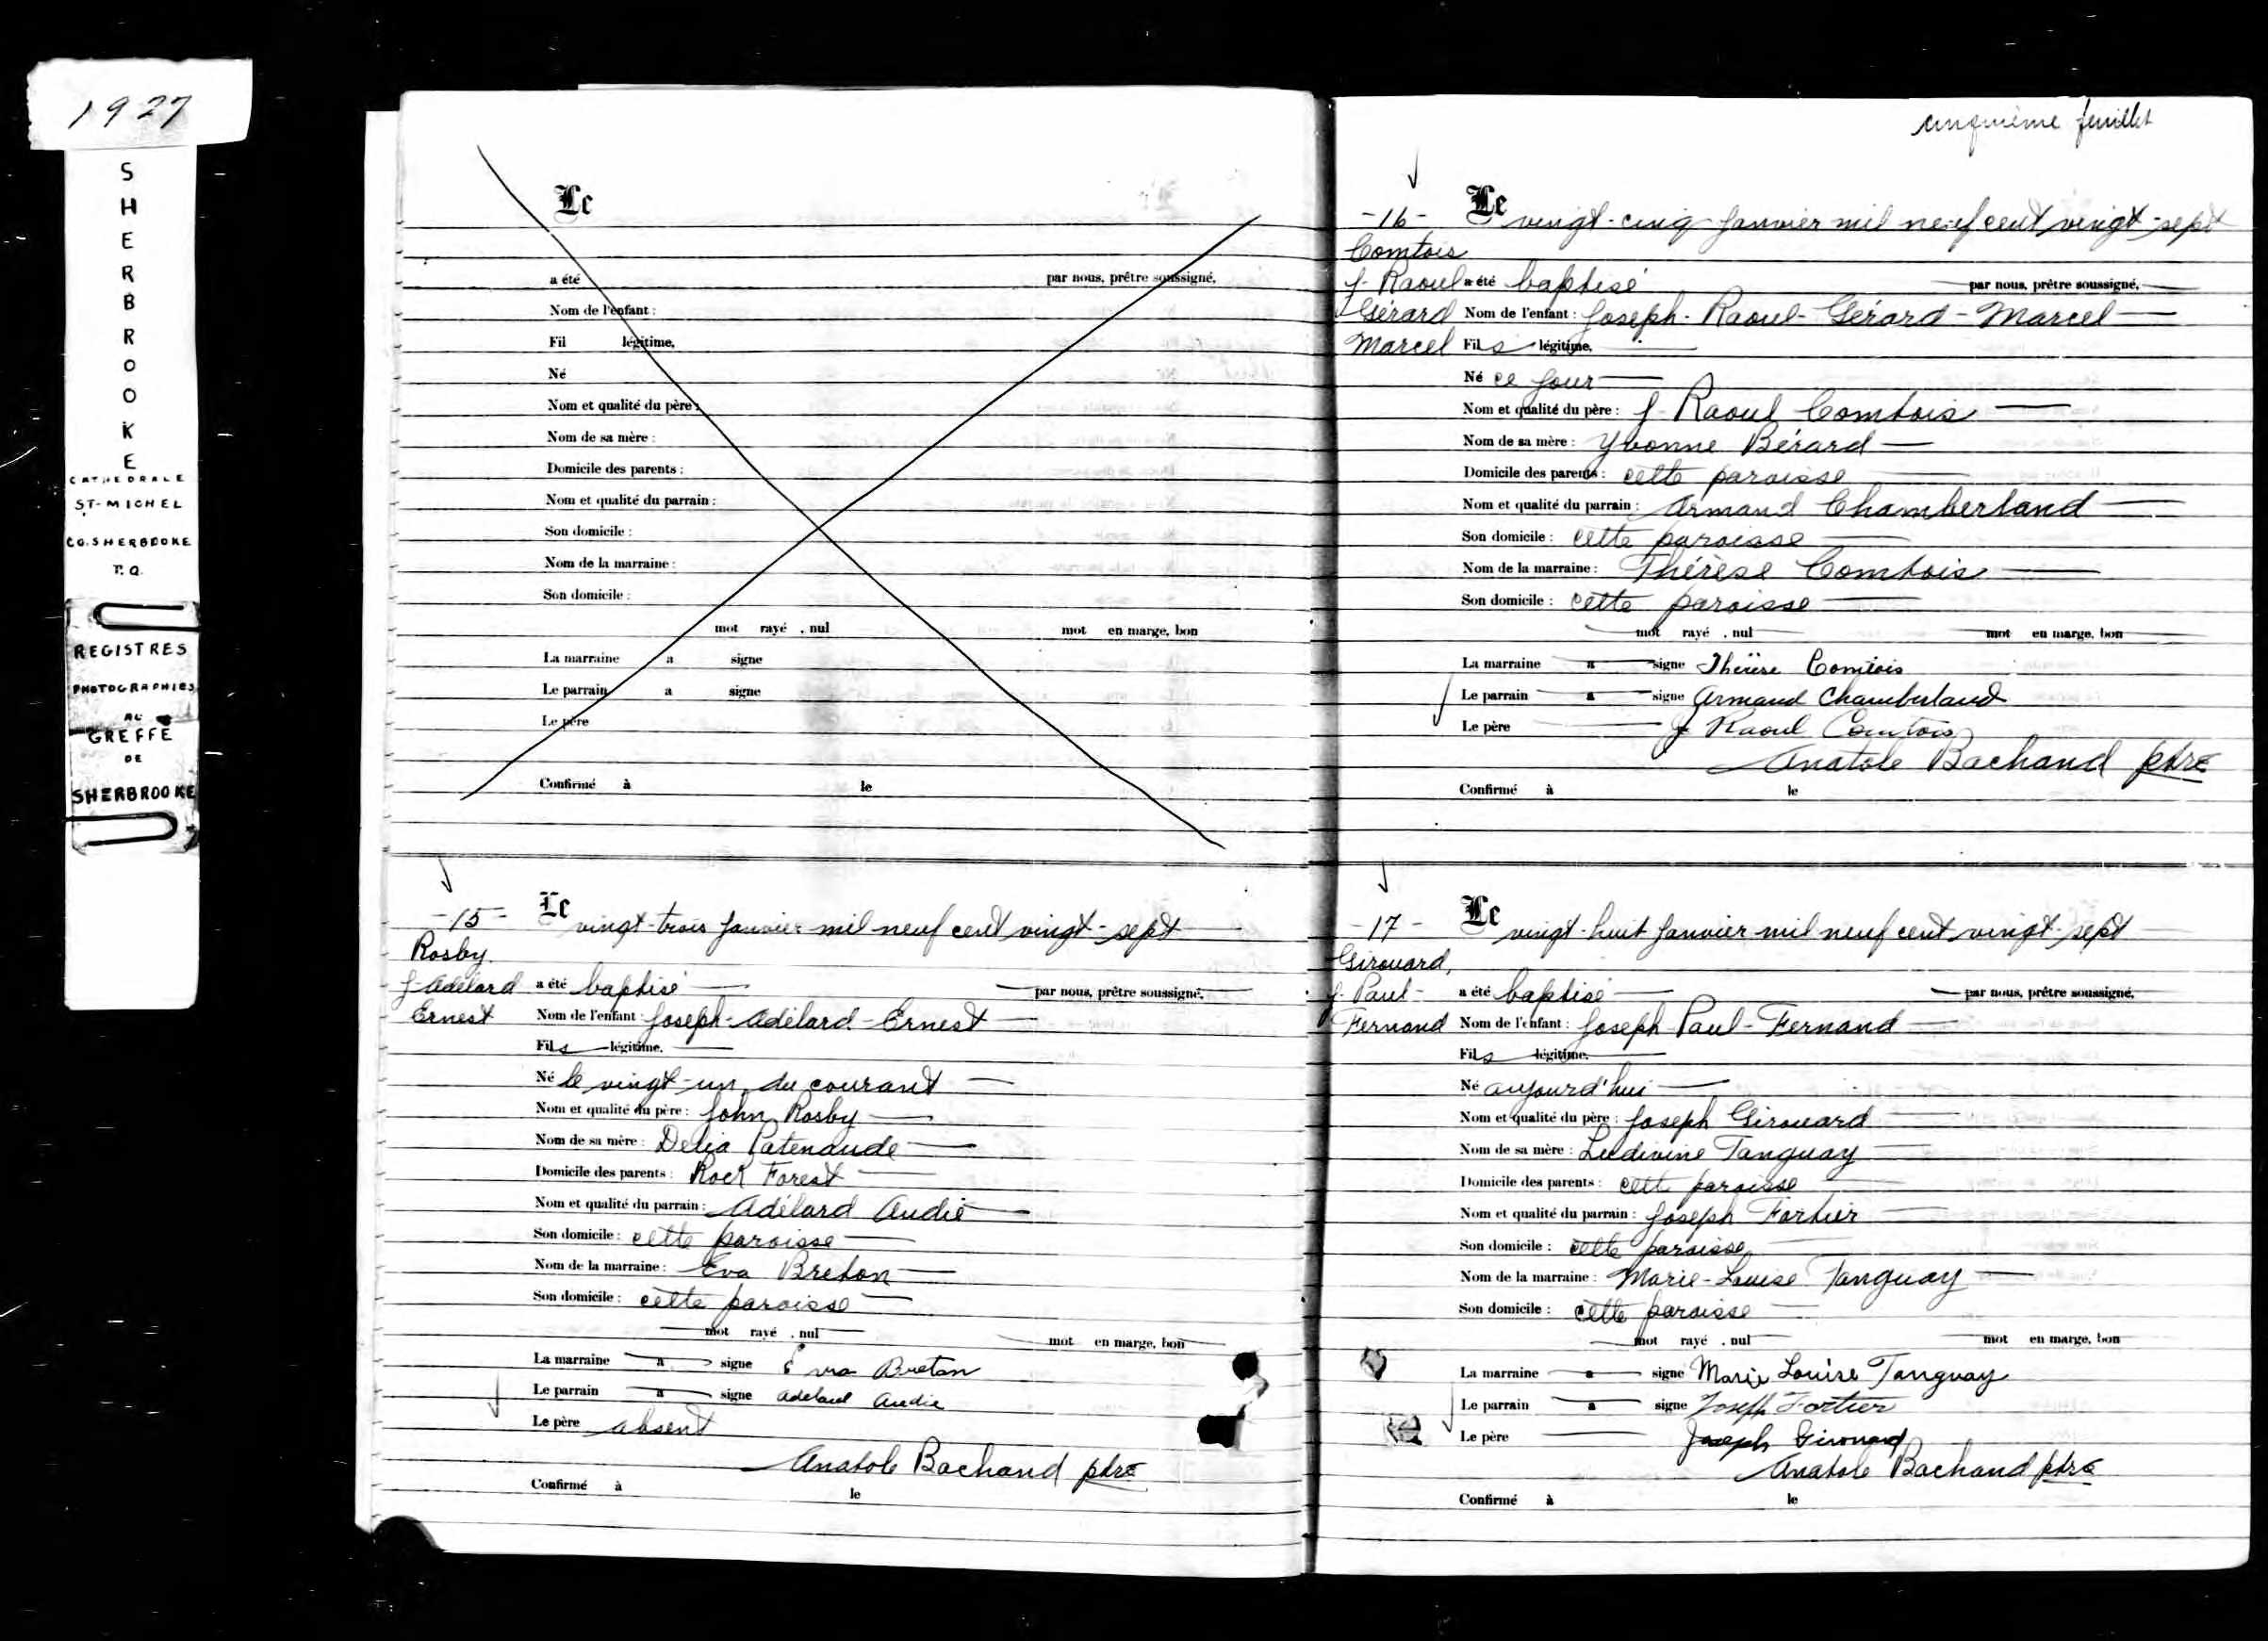 1927
SHERBROOKE
CATHEDRALE
ST-MICHEL
CO. SHERBROOKE
P.Q.
REGISTRES
PHOTOGRAPHIES
AU
GREFFE
DE
SHERBROOKE
Le
a été par nous, prêtre soussigné,
Nom de l'enfant :
Fil légitime,
Né
Nom et qualité du père :
Nom de sa mère :
Domicile des parents :
Nom et qualité du parrain :
Son domicile :
Nom de la marraine :
Son domicile :
mot rayé , nul mot en marge, bon
La marraine a signé
Le parrain a signé
Le père
Confirmé à le
-15- Le vingt-trois janvier mil neuf cent vingt-sept
Rosby.
J-Adélard a été baptisé par nous, prêtre soussigné,
Ernest Nom de l'enfant : Joseph-Adélard-Ernest
Fils légitime,
Né le vingt-un du courant
Nom et qualité du père : John Rosby
Nom de sa mère : Delia Patenaude
Domicile des parents : Rock Forest
Nom et qualité du parrain : Adélard Audie
Son domicile : cette paroisse
Nom de la marraine : Eva Breton
Son domicile : cette paroisse
mot rayé , nul mot en marge, bon
La marraine a signé Eva Breton
Le parrain a signé Adelard Audie
Le père absent
Anatole Bachand ptre
Confirmé à le
cinquième feuillet
-16- Le vingt-cinq janvier mil neuf cent vingt-sept
Comtois
J-Raoul a été baptisé par nous, prêtre soussigné,
Gérard Nom de l'enfant : Joseph-Raoul-Gérard-Marcel
Marcel Fils légitime,
Né ce jour
Nom et qualité du père : J-Raoul Comtois
Nom de sa mère : Yvonne Bérard
Domicile des parents : cette paroisse
Nom et qualité du parrain : Armand Chamberland
Son domicile : cette paroisse
Nom de la marraine : Thérèse Comtois
Son domicile : cette paroisse
mot rayé , nul mot en marge, bon
La marraine a signé Thérèse Comtois
Le parrain a signé Armand Chamberland
Le père J Raoul Comtois
Anatole Bachand ptre
Confirmé à le
-17- Le vingt-huit janvier mil neuf cent vingt-sept
Girouard,
J. Paul- a été baptisé par nous, prêtre soussigné,
Fernand Nom de l'enfant : Joseph Paul-Fernand
Fils légitime,
Né aujourd'hui
Nom et qualité du père : Joseph Girouard
Nom de sa mère : Ludivine Tanguay
Domicile des parents : cett paroisse
Nom et qualité du parrain : Joseph Fortier
Son domicile : cette paroisse
Nom de la marraine : Marie-Louise Tanguay
Son domicile : cette paroisse
mot rayé , nul mot en marge, bon
La marraine a signé Marie Louise Tanguay
Le parrain a signé Joseph Fortier
Le père Joseph Girouard
Anatole Bachand ptre
Confirmé à le